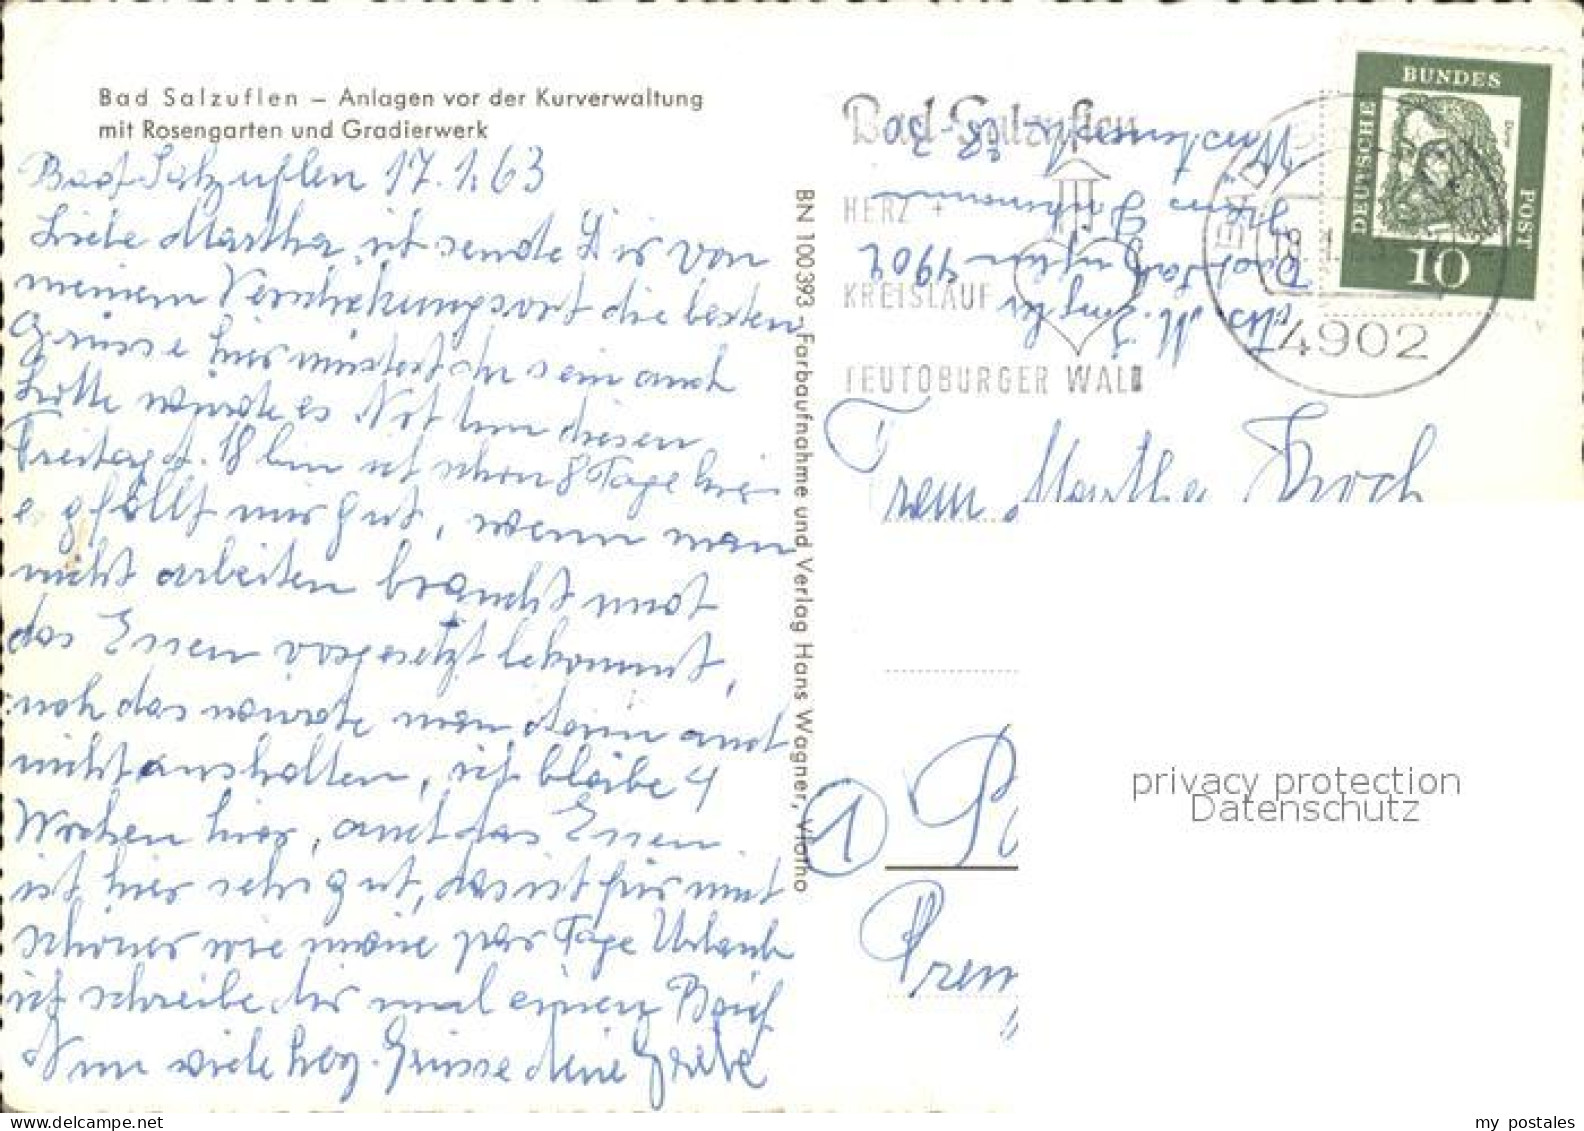 Bad Salzuflen – Anlagen vor der Kurverwaltung
mit Rosengarten und Gradierwerk
Bad Salzuflen 17.1.63
Liebe Martha, ich sende Dir von
meinem Verschickungsort die besten
Grüsse hier müsstest du sein auch
Lotte würde es Not tun diesen
Freitag d. 18 bin ich schon 8 Tage hier
e gfällt mir gut, wenn man
nicht arbeiten braucht und
das Essen vorgesetzt bekommt,
noh das würde man dann auch
nicht aushalten, ich bleibe 4
Wochen hier, auch das Essen
ist hier sehr gut, das ist für mich
schöner wie meine par Tage Urlaub
ich schreibe Dir mal einen Brief
Nun viele herz. Grüsse deine Grete
BN 100393 - Farbaufnahme und Verlag Hans Wagner, Vlotho
Bad-Salzuflen
HERZ +
KREISLAUF
TEUTOBURGER WALD
4902
DEUTSCHE
BUNDES
POST
Dürer
10
Abs. M.
Bad Salzuflen 4902
Frau Martha Koch
1
privacy protection
Datenschutz
my postales